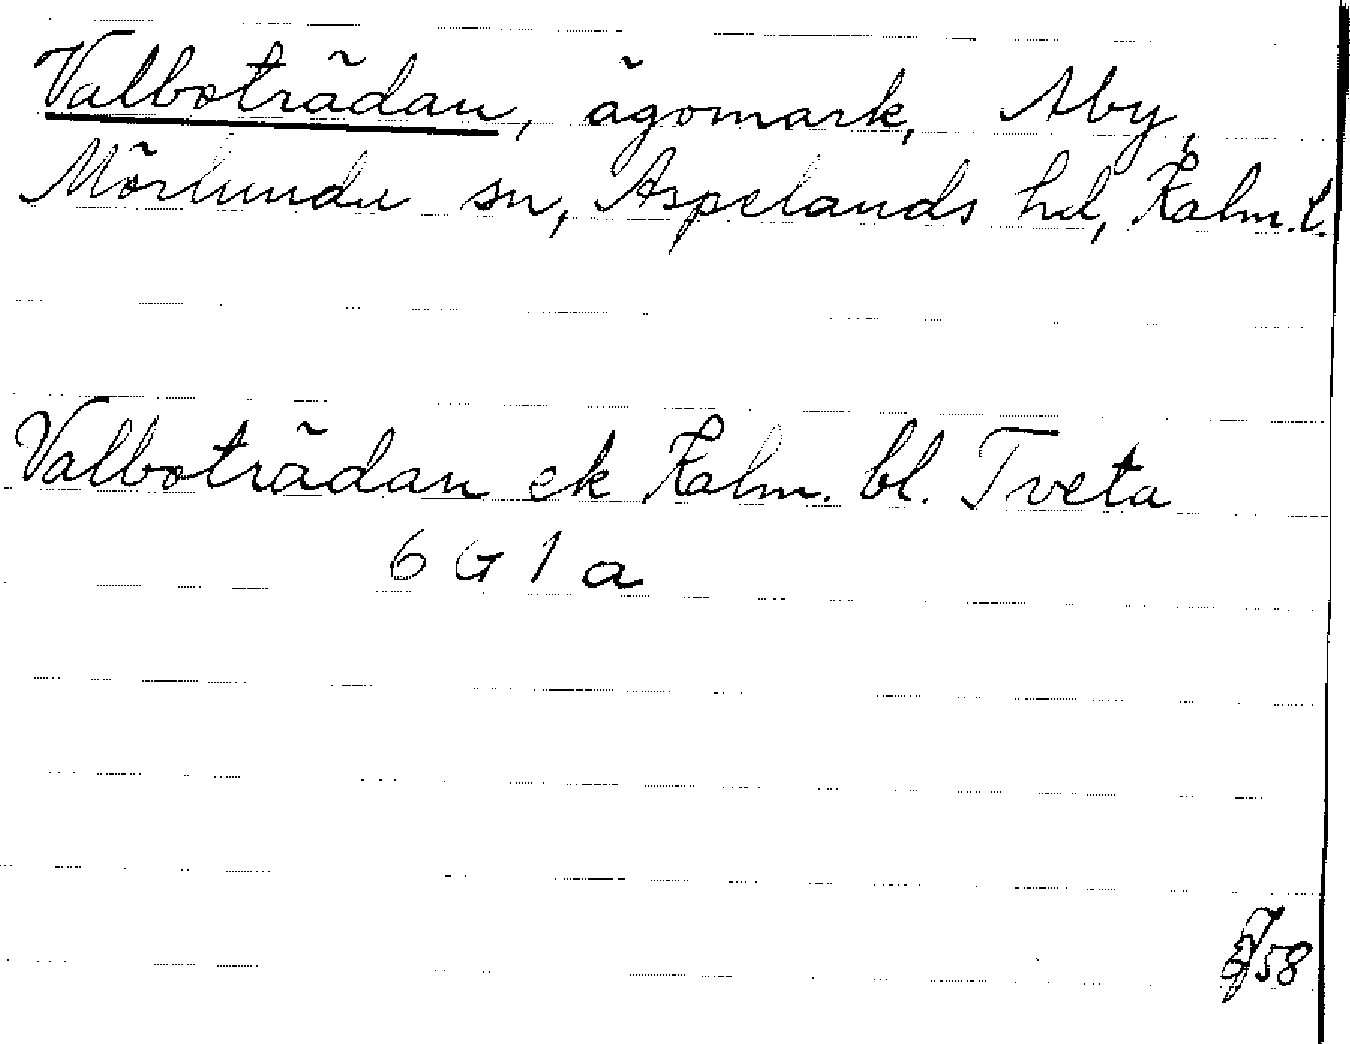 Valboträdan, ägomark, Åby,
Mörlunda sn, Aspelands hd, Kalm.l.
Valboträdan ek Kalm. bl. Tveta
6 G 1 a
58